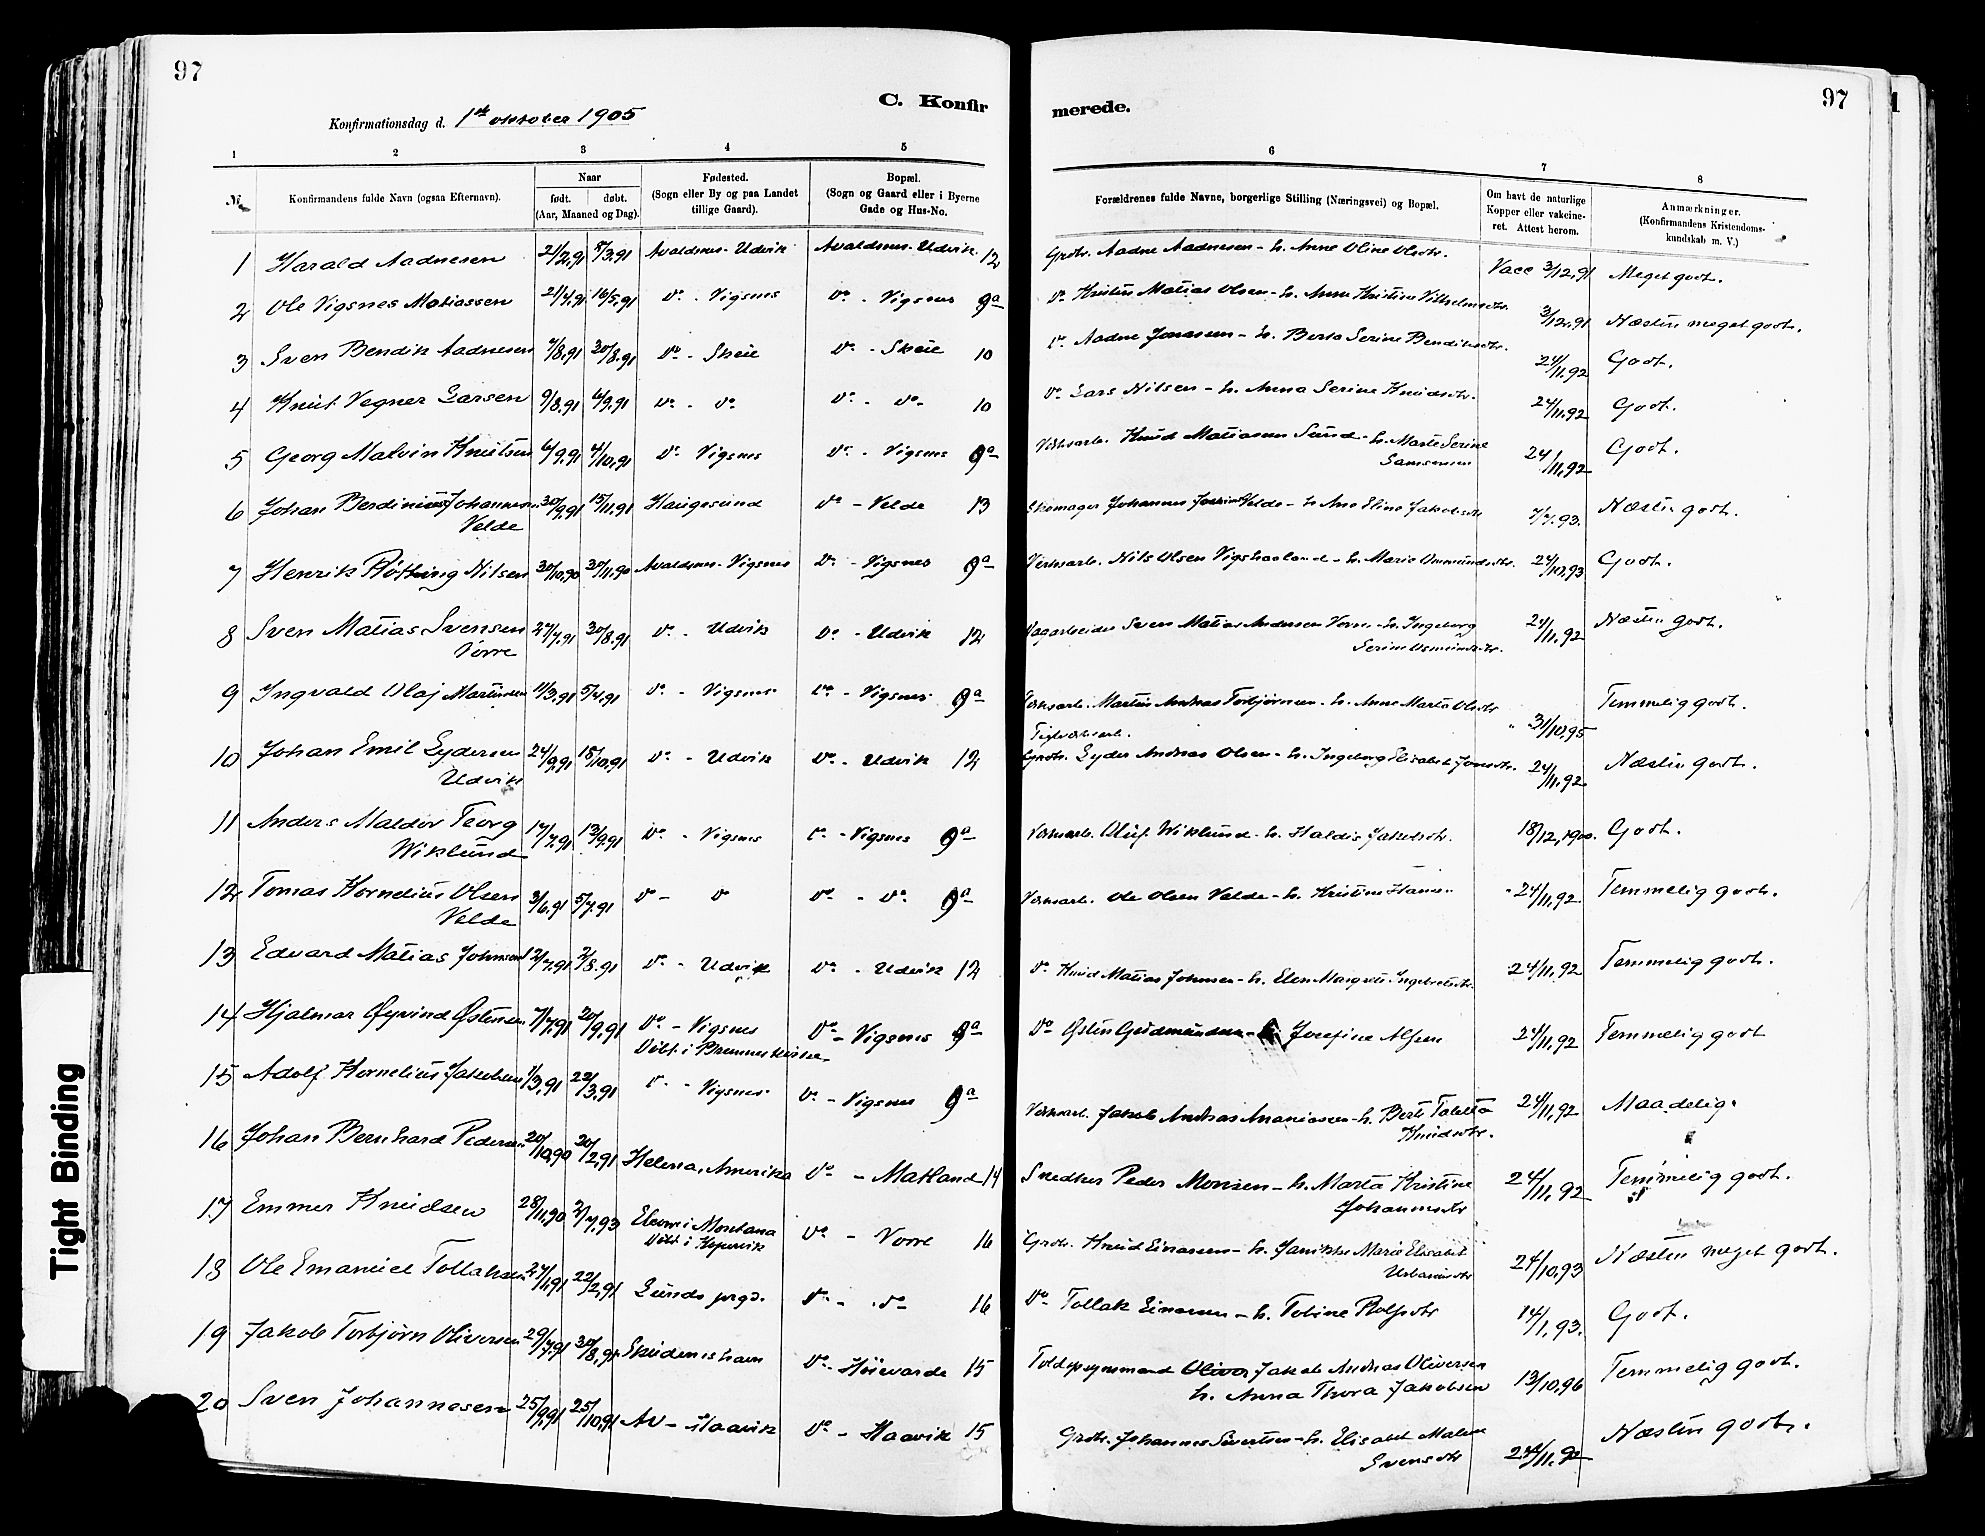 97
C. Konfir
merede.
97
Konfirmationsdag d. 1ste oktober 1905
1 2 3 4 5 6 7 8
No.
Konfirmandens fulde Navn (ogsaa Efternavn).
Naar
født. døbt.
(Aar, Maaned og Dag).
Fødested.
(Sogn eller By og paa Landet
tillige Gaard).
Bopæl.
(Sogn og Gaard eller i Byerne
Gade og Hus-No.
Forældrenes fulde Navne, borgerlige Stilling (Næringsvei) og Bopæl.
Om havt de naturlige
Kopper eller vakcine-
ret. Attest herom.
Anmærkninger.
(Konfirmandens Kristendoms-
kundskab m. V.)
1 Harald Aadnesen 2/2,91 8/3,91 Avaldsnes - Udvik Avaldsnes - Udvik 12 Grdbr. Aadne Aadnesen - h. Anne Oline Olsdtr. Vacc 3/12,91 Meget godt.
2 Ole Vigsnes Matiassen 2/4,91 16/5,91 Do - Vigsnes Do - Vigsnes 9a Do Matias Olsen - h. Anne Kristine 3/12,91 Næsten meget godt.
3 Sven Bendik Aadnesen 4/8,91 30/8,91 Do - Skeie Do - Skeie 10 Do Aadne Jonassen - h. Berta Serine Bendiksdtr. 24/11,92 Godt.
4 Knut Vegner Larsen 9/8,91 6/9,91 Do - Do Do - Do 10 Do Lars Nilsen - h. Anna Serine Knudsdtr. 24/11,92 Godt.
5 Georg Malvin Knutsen 6/9,91 4/10,91 Do - Vigsnes Do - Vigsnes 9a Verksarb. Knud Matiassen Sund - h. Marte Serine
Samsonsen 24/11,92 Godt.
6 Johan Berdinius Johannesen 30/9,91 15/11,91 Haugesund Do - Velde 13 Skomager Johannes Velde - h. Ane Eline Jakobsdtr 7/7,93. Næsten godt.
Velde
7 Henrik Nilsen 30/10,90 30/11,90 Avaldsnes - Vigsnes Do - Vigsnes 9a Verksarb. Nils Olsen Vigshaaland - h. Marie Ommundsdtr. 24/10,93 Godt.
8 Sven Matias Svensen 27/7,91 30/8,91 Do - Udvik Do - Udvik 12 Sven Matias Andersen Vorre - h. Ingeborg
Vorre Serine Osmundsdtr. 24/11,92 Næsten godt.
9 Ingvald Olaj Martinsen 11/3,91 5/4,91 Do - Vigsnes Do - Vigsnes 9a Verksarb. Martin Andreas Torbjørnsen - h. Anne Marta Olsdtr " 31/10,95 Temmelig godt.
10 Johan Emil Lydersen 24/9,91 18/10,91 Do - Udvik Do - Udvik 12 Grdbr. Lyder Andreas Olsen - h. Ingeborg Elisabet Jonsdtr. 24/11,92 Næsten godt.
Udvik
11 Anders Maldor Georg 17/7,91 13/9,91 Do - Vigsnes Do - Vigsnes 9a Verksarb. Oluf Wiklund - h. Haldis Jakobsdtr. 18/12,1900. Godt.
Wiklund
12 Tomas Kornelius Olsen 3/6,91 5/7,91 Do - Do Do - Do 9a Verksarb. Ole Olsen Velde - h. Kristine Hansen 24/11,92 Temmelig godt.
Velde
13 Edvard Matias Johnsen 12/7,91 2/8,91 Do - Udvik Do - Udvik 12 Do Knud Matias Johnsen - h. Elen Margrete Ingebretsdtr. 24/11,92 Temmelig godt.
14 Hjalmar Øyvind Østensen 7/7,91 20/9,91 Do - Vigsnes Do - Vigsnes 9a Do Østen Gudmundsen - h. Josefine Alfsen 24/11,92 Temmelig godt
Døbt i Bremneskirke
15 Adolf Kornelius Jakobsen 1/3,91 22/3,91 Do - Vigsnes Do - Vigsnes 9a Verksarb. Jakob Andreas Ananiassen - h. Berte Tabitta
Knudsdtr. 24/11,92 Maadelig.
16 Johan Bernhard Pedersen 20/10,90 20/2,91 Helena, Amerika Do - Matland 14 Snedker Peder Monsen - h. Marta Kristine
Johannesdtr 24/11,92 Temmelig godt.
17 Emmer Knudsen 28/11,90 2/7,93 i Montana
Døbt i Kopervik Do - Vorre 16 Grdbr. Knud Einarsen - h. Janikke Marie Elisabet
Urbanusdtr 24/10,93 Næsten meget godt.
18 Ole Emanuel Tollaksen 27/1,91 22/2,91 Lunds prgd. Do - Do 16 Do Tollak Einarsen - h. Tobine Rolfsdtr 14/1,93. Godt.
19 Jakob Torbjørn Oliversen 29/7,91 30/8,91 Skudeneshavn Do - Høievarde 15 Toldopsynsmand Jakob Andreas Oliversen
h. Anna Thora Jakobsen 13/10,96 Temmelig godt.
20 Sven Johannesen 25/9,91 25/10,91 Av - Haavik Do - Haavik 15 Grdbr. Johannes Sivertsen - h. Elisabet Malene
Svensdtr 24/11,92 Næsten godt.
Tight Binding